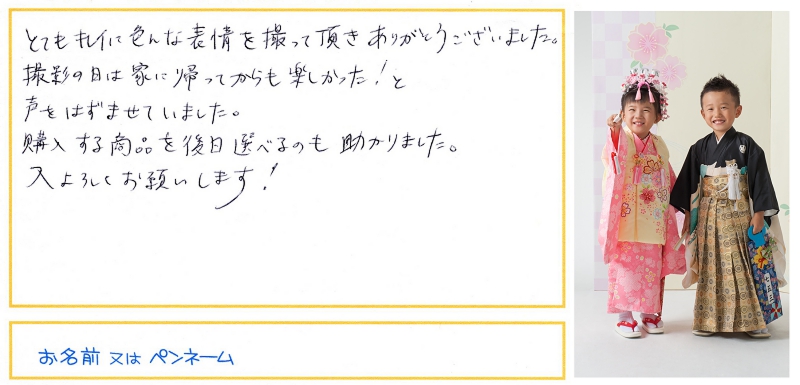 とてもキレイに色んな表情を撮って頂きありがとうございました。
撮影の日は家に帰ってからも楽しかった!と
声をはずませていました。
購入する商品を後日選べるのも助かりました。
又よろしくお願いします!
お名前 又は ペンネーム